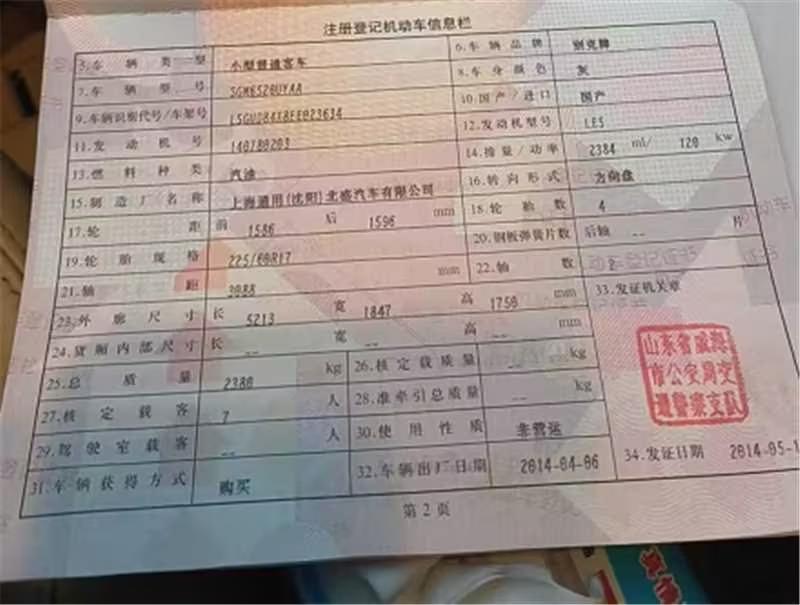 注册登记机动车信息栏
5.车辆类型 小型普通客车 6.车辆品牌 别克牌
7.车辆型号 SGM6520UYAA 8.车身颜色 灰
9.车辆识别代号/车架号 10.国产/进口 国产
11.发动机号 140780203 12.发动机型号 LE5
13.燃料种类 汽油 14.排量/功率 2384 ml/ 120 kw
15.制造厂名称 上海通用(沈阳)北盛汽车有限公司 16.转向形式 方向盘
17.轮距 前 1586 后 1596 mm 18.轮胎数 4
19.轮胎规格 225/60R17 20.钢板弹簧片数 后轴 -- 片
21.轴距 3088 mm 22.轴数
23.外廓尺寸 长 5213 宽 1847 高 1750 mm 33.发证机关章
24.货厢内部尺寸 长 -- 宽 -- 高 -- mm
25.总质量 2380 kg 26.核定载质量 -- kg
27.核定载客 7 人 28.准牵引总质量 -- kg
29.驾驶室载客 -- 人 30.使用性质 非营运
31.车辆获得方式 购买 32.车辆出厂日期 2014-04-06 34.发证日期 2014-05-1
山东省威海
市公安局交
通警察支队
第2页